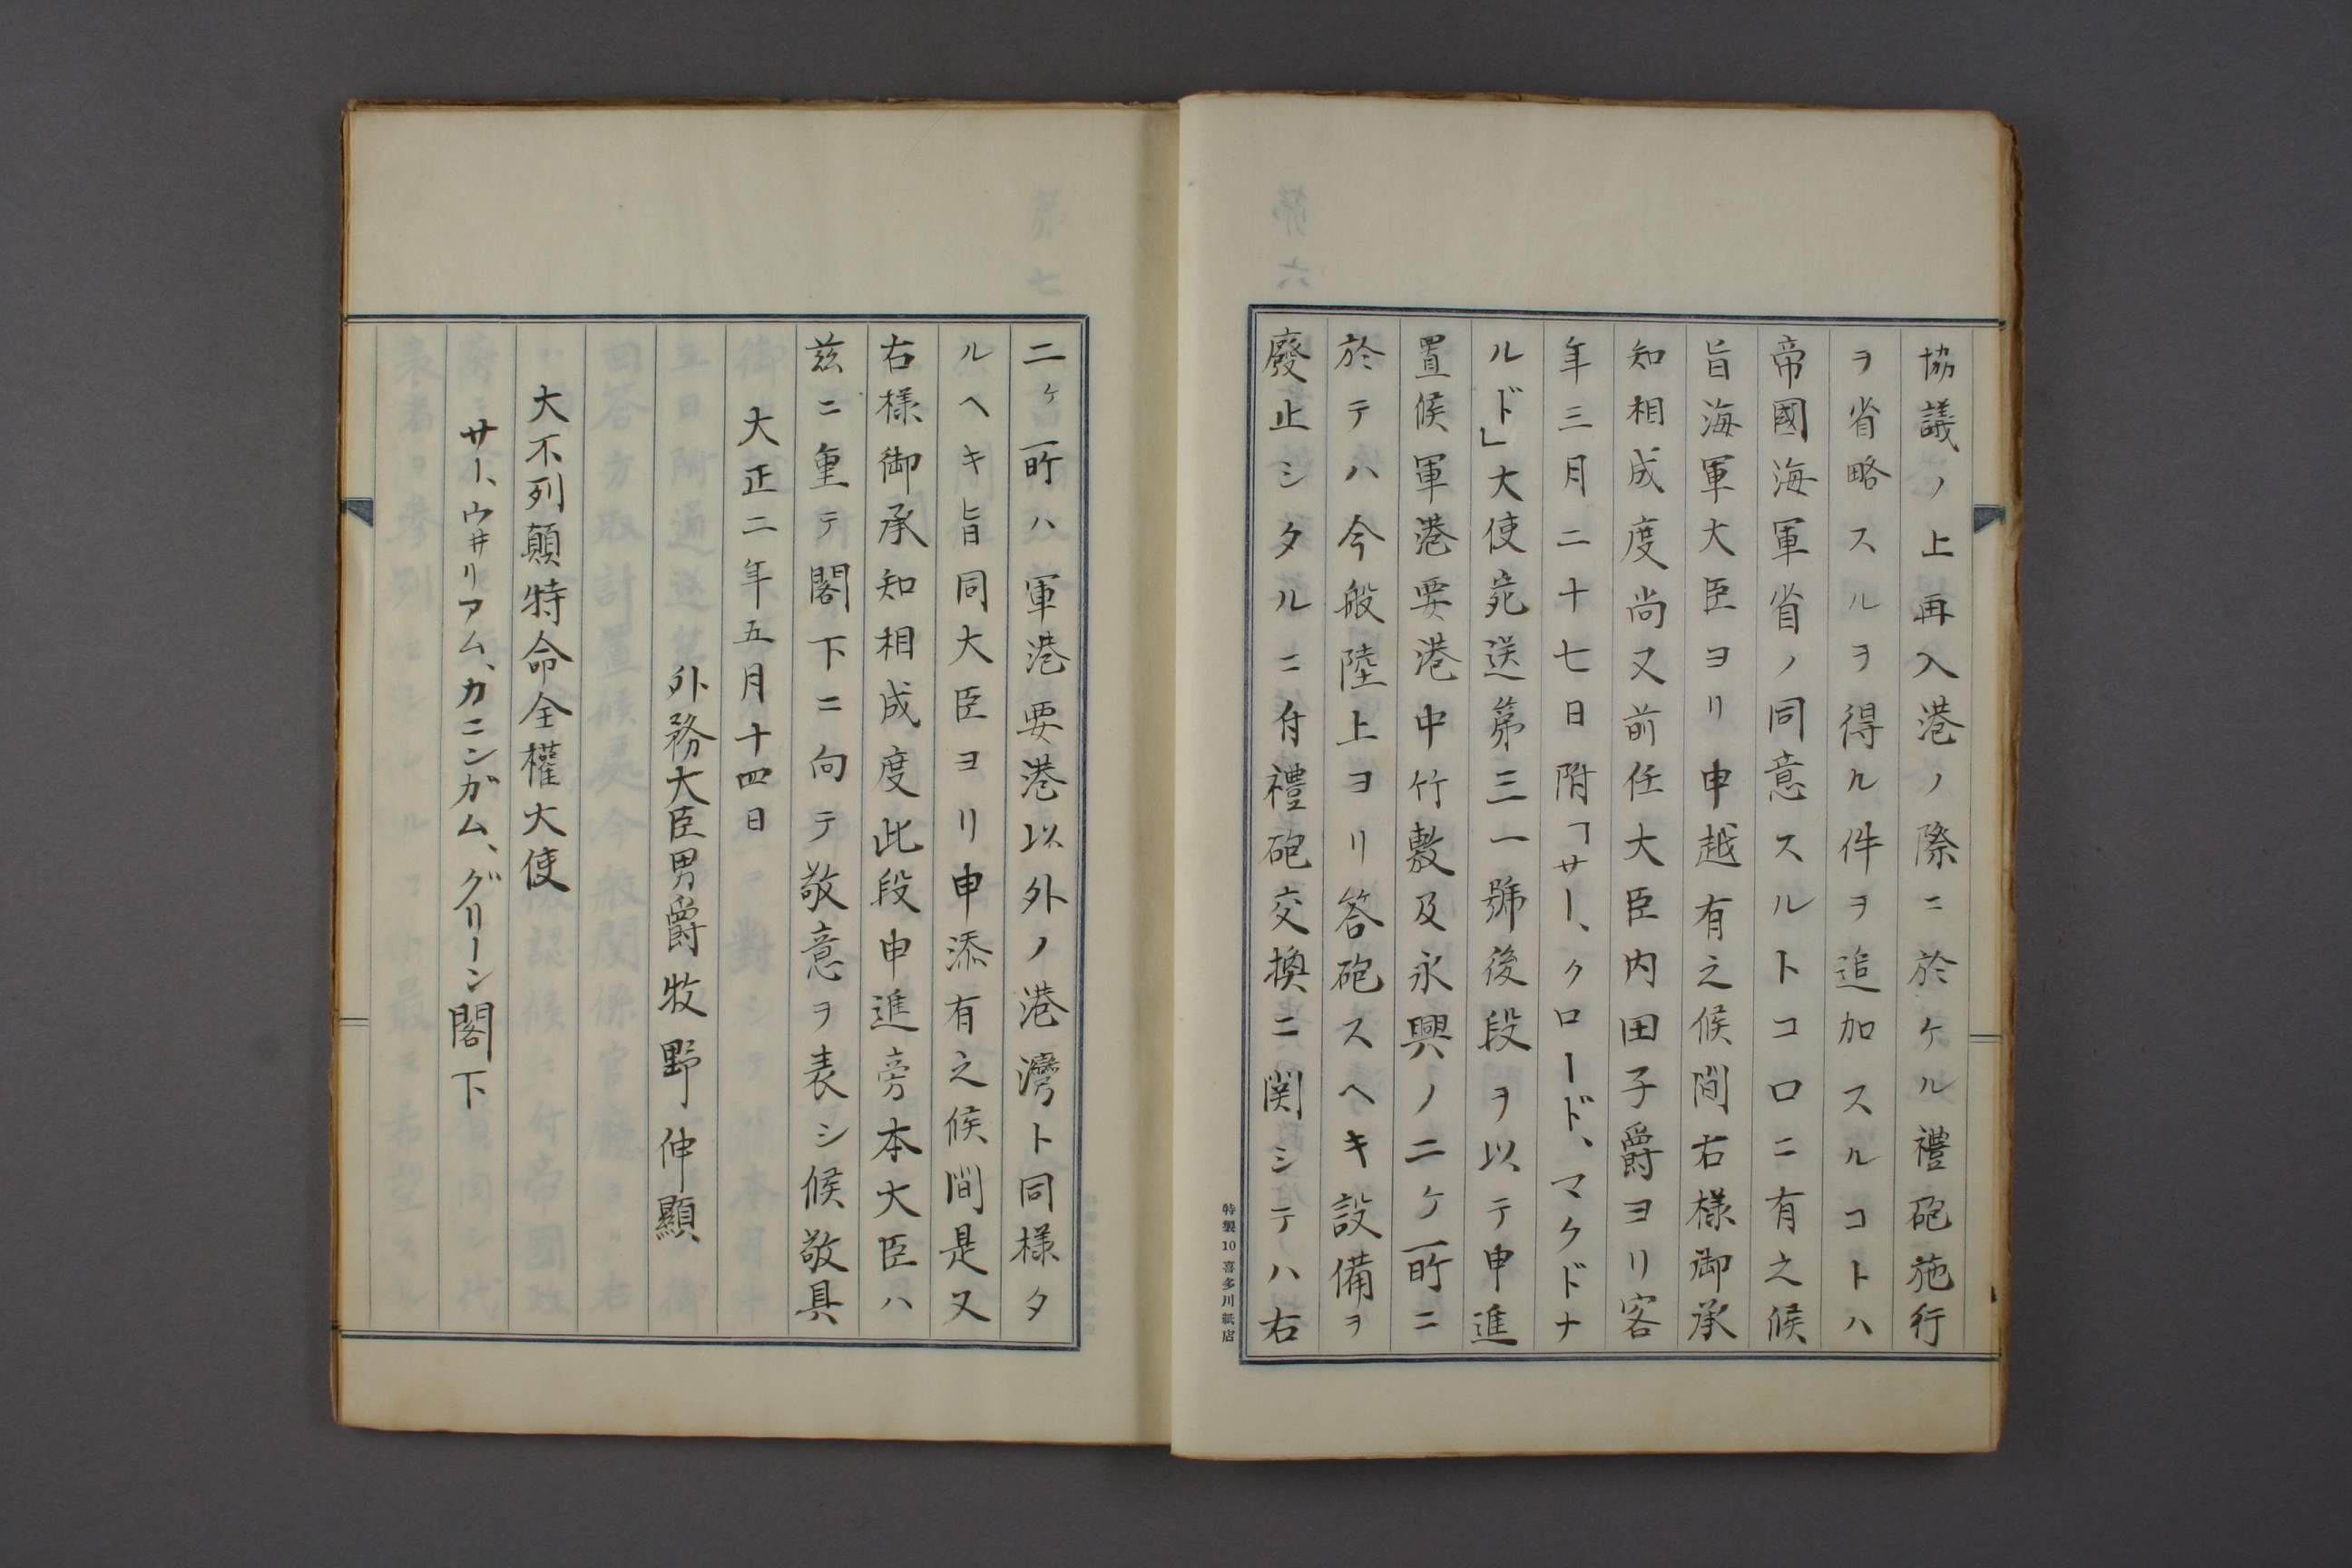 協議ノ上再入港ノ際ニ於ケル禮砲施行
ヲ省略スルヲ得ル件ヲ追加スルコトハ
帝國海軍省ノ同意スルトコロニ有之候
旨海軍大臣ヨリ申越有之候間右様御承
知相成度尚又前任大臣内田子爵ヨリ客
年三月二十七日附「サー、クロード、マクドナ
ルド」大使宛送第三一號後段ヲ以テ申進
置候軍港要港中竹敷及永興ノ二ケ所ニ
於テハ今般陸上ヨリ答砲スヘキ設備ヲ
廢止シタルニ付禮砲交換ニ関シテハ右
特製10喜多川紙店
二ヶ所ハ軍港要港以外ノ港灣ト同様タ
ルヘキ旨同大臣ヨリ申添有之候間是又
右様御承知相成度此段申進旁本大臣ハ
茲ニ重テ閣下ニ向テ敬意ヲ表シ候敬具
大正二年五月十四日
外務大臣男爵牧野伸顯
大不列顛特命全權大使
サー、ウヰリアム、カニンガム、グリーン閣下